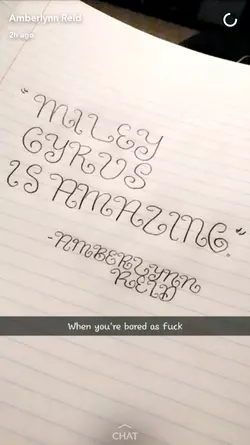 Amberlynn Reid
2h ago
"MILEY
CYRUS
IS AMAZING."
-AMBERLYNN
REID
When you're bored as fuck
CHAT